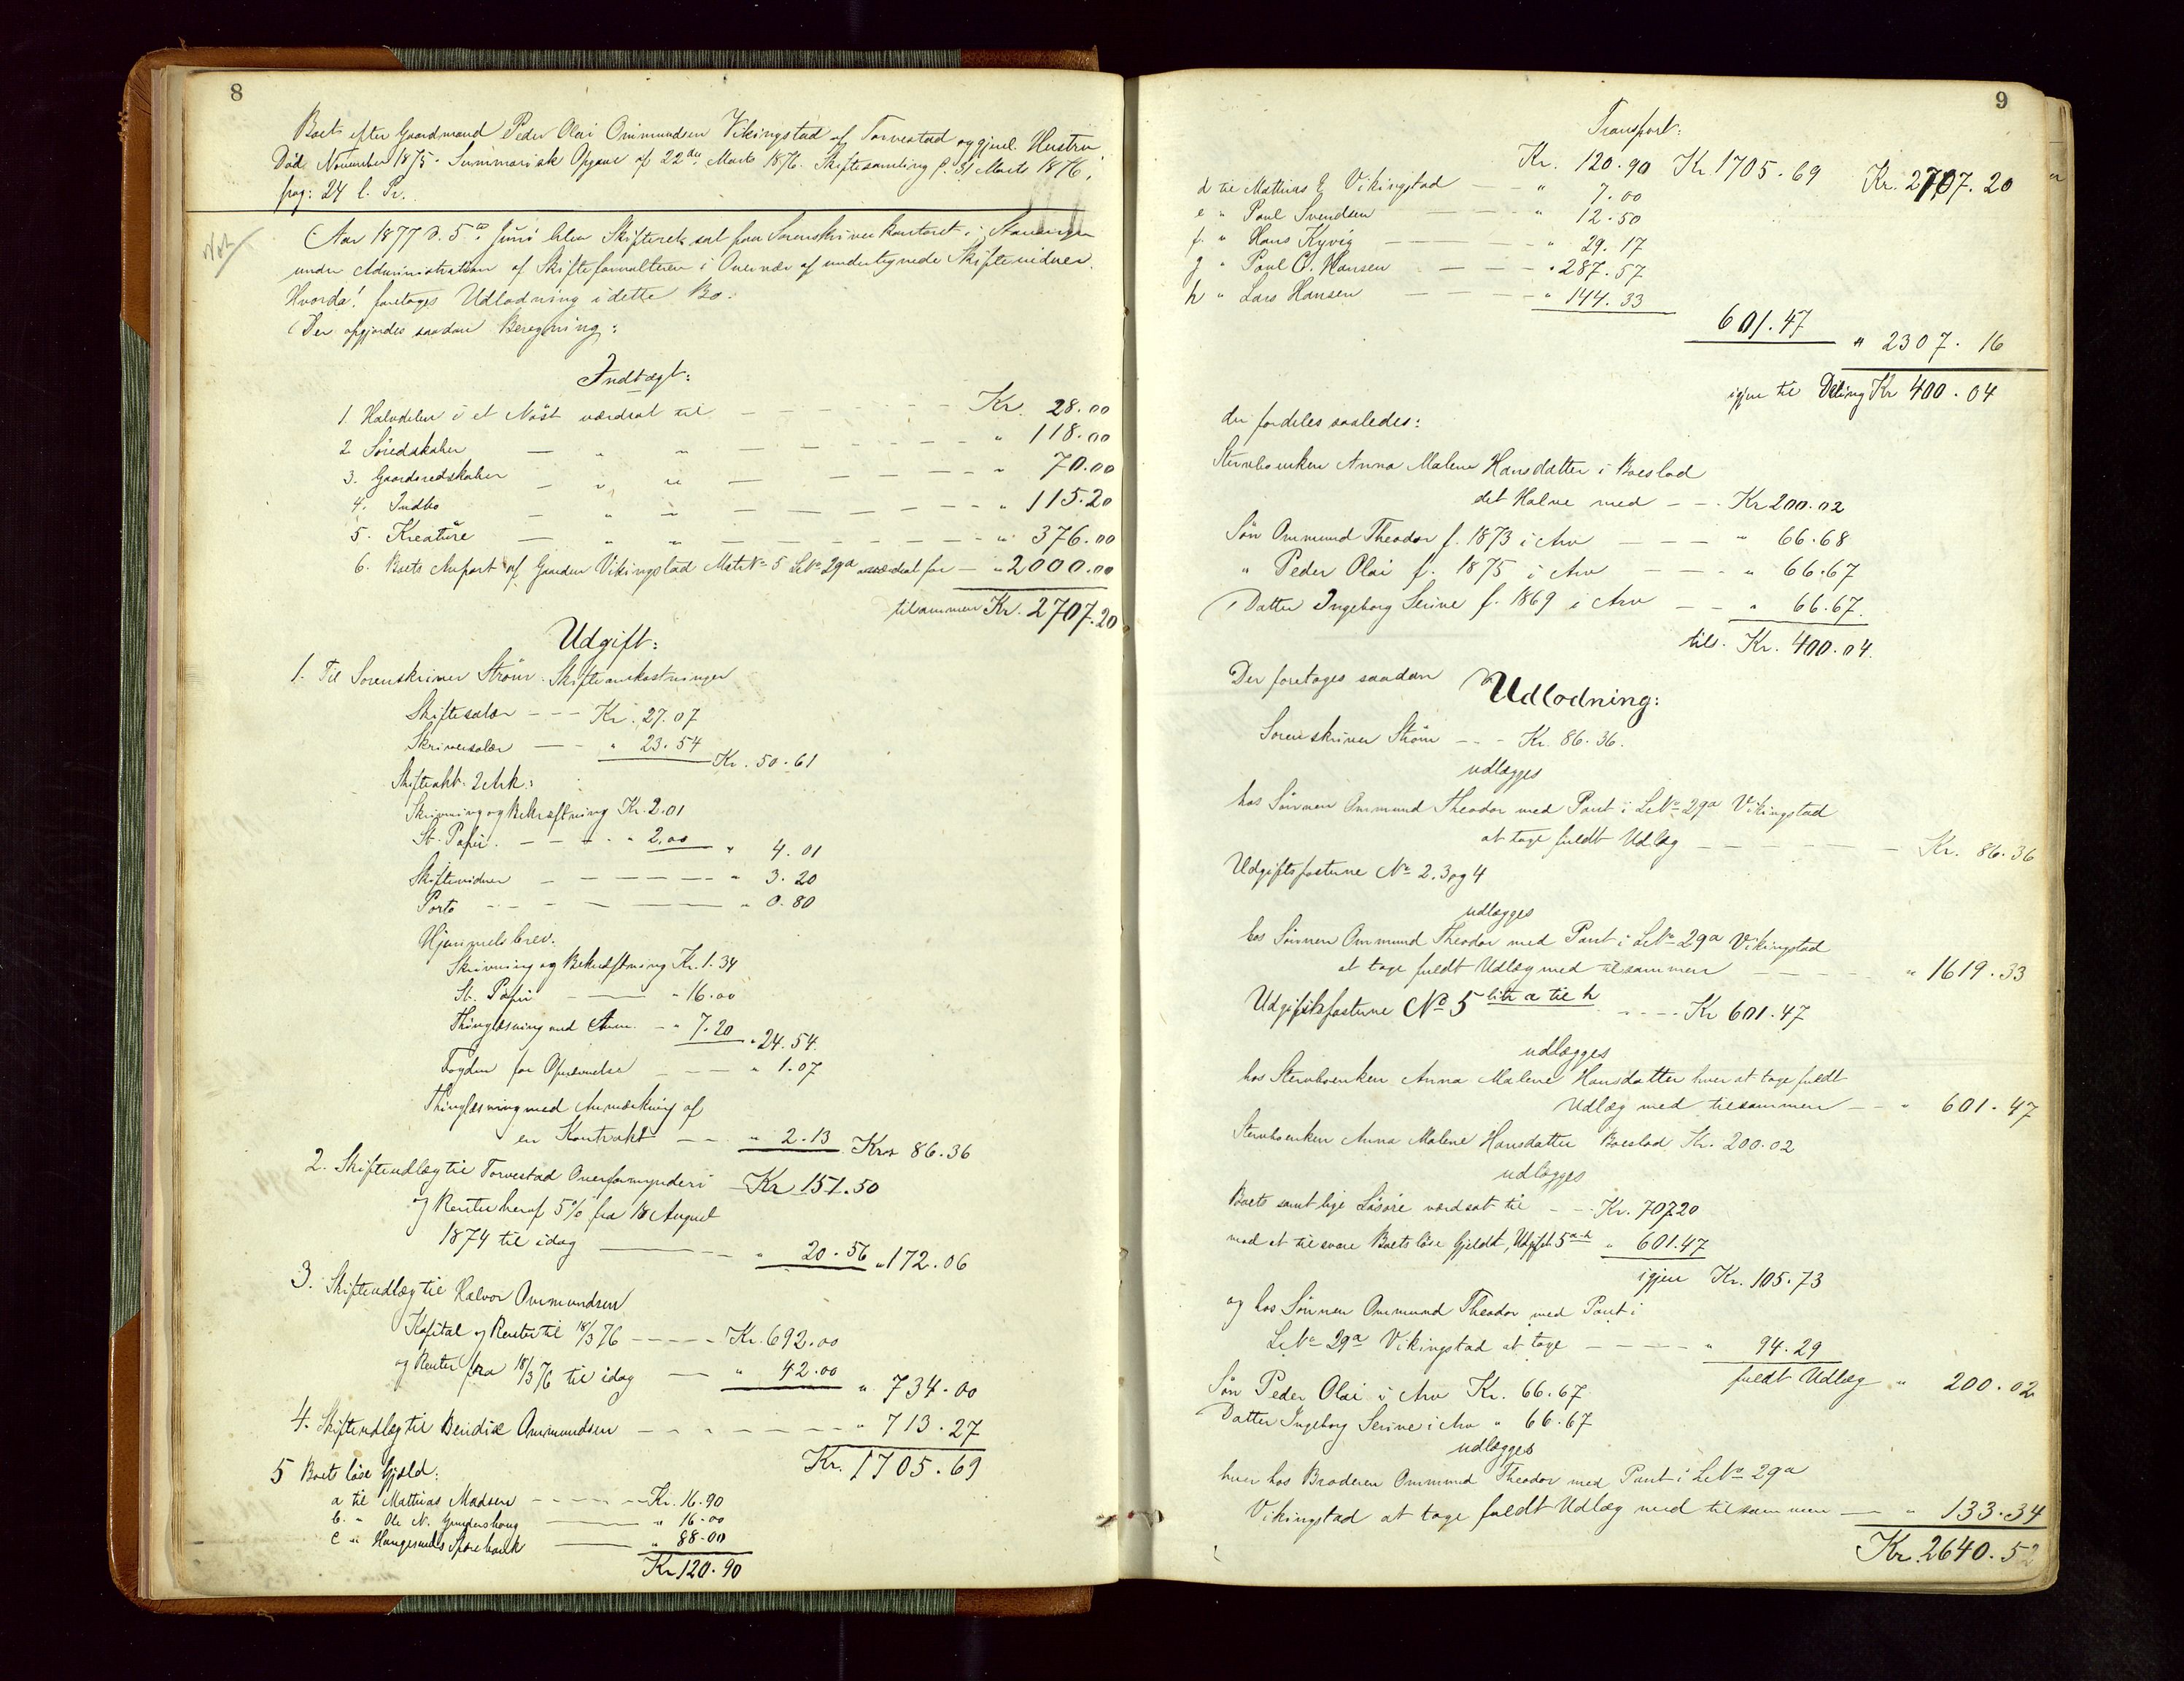 8
Boet efter Gaardmand Peder Olai Ommundsen Vikingstad af Torvestad og gjenl. Hustru
Död November 1875. Summarisk Opgave af 22de Marts 1876. Skiftesamling f. 31 Marts 1876,
pag: 24 l. Pr.
Not
Aar 1877 d. 5te Juni blev Skifteret sat paa Sorenskriverkontoret i Stavanger
under Administration af Skifteforvalteren i Overvær af undertegnede Skiftevidner.
Hvorda! foretoges Udlodning i dette Bo.
Der opgjordes saadan Beregning:
Indtægt:
1. Halvdelen i et Nöst værdsat til — Kr. 28.00
2. Söredskaber — " " — " 118.00
3. Gaardsredskaber — " " — " 70.00
4. Indbo — " " — " 115.20
5. Kreature — " " — " 376.00
6. Boets Anpart af Gaarden Vikingstad Mat. No 5 L.No 29a værdsat for — " 2000.00
tilsammen Kr. 2707.20
Udgift:
1. Til Sorenskriver Ström Skifteomkostninger
Skiftesalær — Kr. 27.07
Skriversalær — " 23.54
Kr. 50.61
Skifteakt. 2 Ark:
Skrivning og Bekræftning Kr. 2.01
St. Papir. — " 2.00 " 4.01
Skiftevidner — " 3.20
Porto — " 0.80
Hjemmelsbrev.
Skrivning og Bekræftning Kr. 1.34
St. Papir — " 16.00
Thinglæsning med Anm. — " 7.20 " 24.54
Fogden for Opnævnelse — " 1.07
Thinglæsning med Anmærkning af
en Kontrakt — " 2.13 Kr. 86.36
2. Skifteudlæg til Torvestad Overformynderi Kr 151.50
og Renter heraf 5% fra 18 August
1874 til idag — " 20.56 " 172.06
3. Skifteudlæg til Halvor Ommundsen
Kapital og Renter til 18/3 76 — Kr. 692.00
og Renter fra 18/3 76 til idag — " 42.00 " 734.00
4. Skifteudlæg til Bendix Ommundsen — " 713.27
Kr. 1705.69
5 Boets löse Gjæld:
a til Mathias Madsen — Kr. 16.90
b. " Ole N. — " 16.00
c " Haugesunds Sparebank — " 88.00
Kr 120.90
9
Transport:
Kr. 120.90 Kr. 1705.69 Kr. 2707.20
d til Mathias E Vikingstad — " 7.00
e " Poul Svendsen — " 12.50
f. " Hans Kyvig — " 29.17
g " Poul C. Hansen — " 287.57
h " Lars Hansen — " 144.33
601.47
" 2307.16
igjen til Deling Kr 400.04
der fordeles saaledes:
Stervboenken Anna Malene Hansdatter i Boeslod
det Halve med — Kr 200.02
Sön Ommund Theodor f. 1873 i Arv — " 66.68
" Peder Olai f. 1875 i Arv — " 66.67
Datter Ingeborg Serine f. 1869 i Arv — " 66.67.
tils. Kr. 400.04.
Der foretoges saadan Udlodning:
Sorenskriver Ström — Kr. 86.36.
udlægges
hos Sönnen Ommund Theodor med Pant i L.No 29a Vikingstad
at tage fuldt Udlæg — Kr. 86.36
Udgiftsposterne No 2. 3 og 4
udlægges
hos Sönnen Ommund Theodor med Pant i L.No 29a Vikingstad
at tage fuldt Udlæg med tilsammen — " 1619.33
Udgiftsposterne No 5 litr a til h — Kr 601.47
udlægges
hos Stervboenken Anna Malene Hansdatter hver at tage fuldt
Udlæg med tilsammen — " 601.47
Stervboenken Anna Malene Hansdatter Boeslod Kr. 200.02
udlægges
Boets samtlige Lösöre værdsat til — Kr. 707.20
mod at tilsvare Boets löse Gjæld, Udgift 5 a-h " 601.47
igjen Kr. 105.73
og hos Sönnen Ommund Theodor med Pant i
L.No 29a Vikingstad at tage — " 94.29
fuldt Udlæg " 200.02
Sön Peder Olai i Arv Kr. 66.67
Datter Ingeborg Serine i Arv " 66.67
udlægges
hver hos Broderen Ommund Theodor med Pant i L.No 29a
Vikingstad at tage fuldt Udlæg med tilsammen — " 133.34
Kr. 2640.52